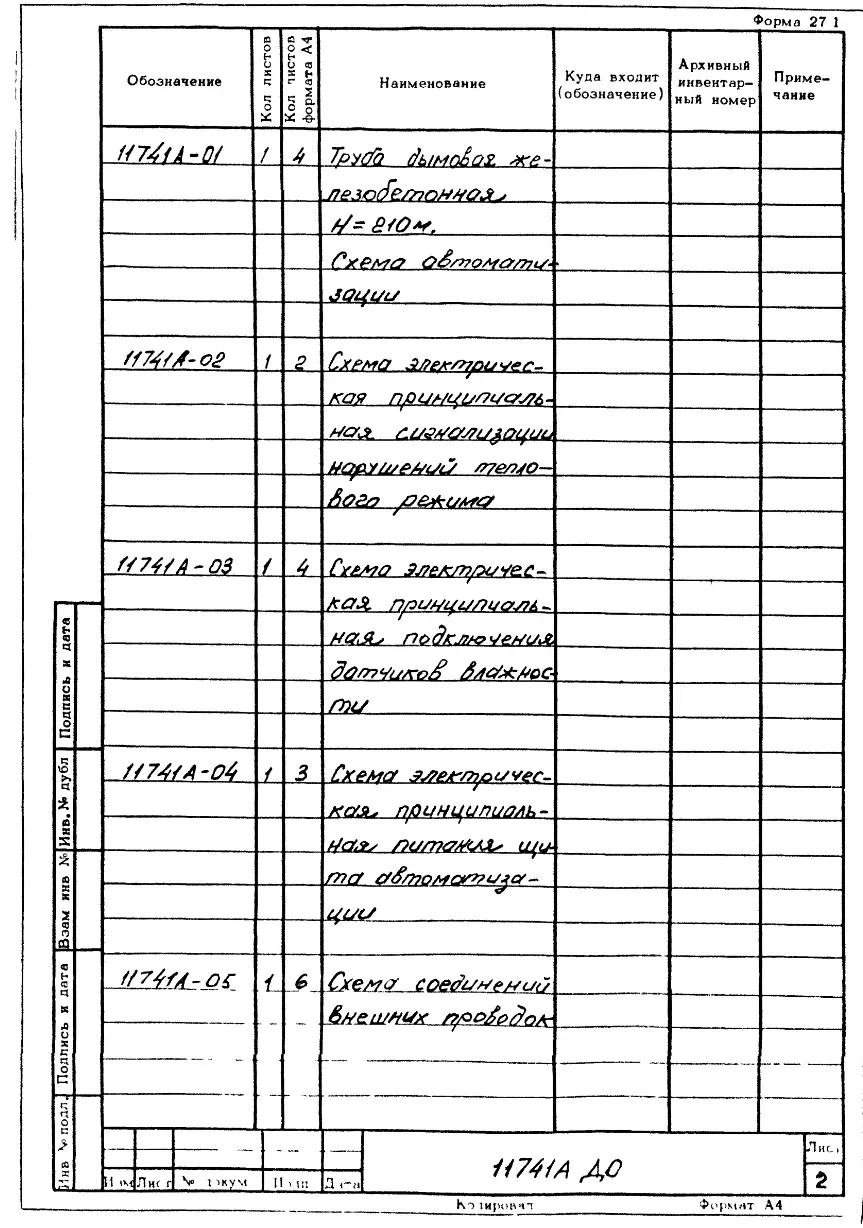 Форма 27 1
Обозначение
Кол листов
Кол листов формата А4
Наименование
Куда входит
(обозначение)
Архивный
инвентар-
ный номер
Приме-
чание
11741А-01 1 4 Труба дымовая же-
лезобетонная
Н=210м.
Схема автомати-
зации
11741А-02 1 2 Схема электричес-
кая принципиаль-
ная сигнализации
нарушений тепло-
вого режима
11741А-03 1 4 Схема электричес-
кая принципиаль-
ная подключения
датчиков влажнос-
ти
11741А-04 1 3 Схема электричес-
кая принципиаль-
ная питания щи-
та автоматиза-
ции
11741А-05 1 6 Схема соединений
внешних проводок
Подпись и дата
Инв. № дубл
Взам инв №
Подпись и дата
Инв № подл.
Изм Лист № докум Подп Дата
11741А ДО
Лист
2
Копировал
Формат А4